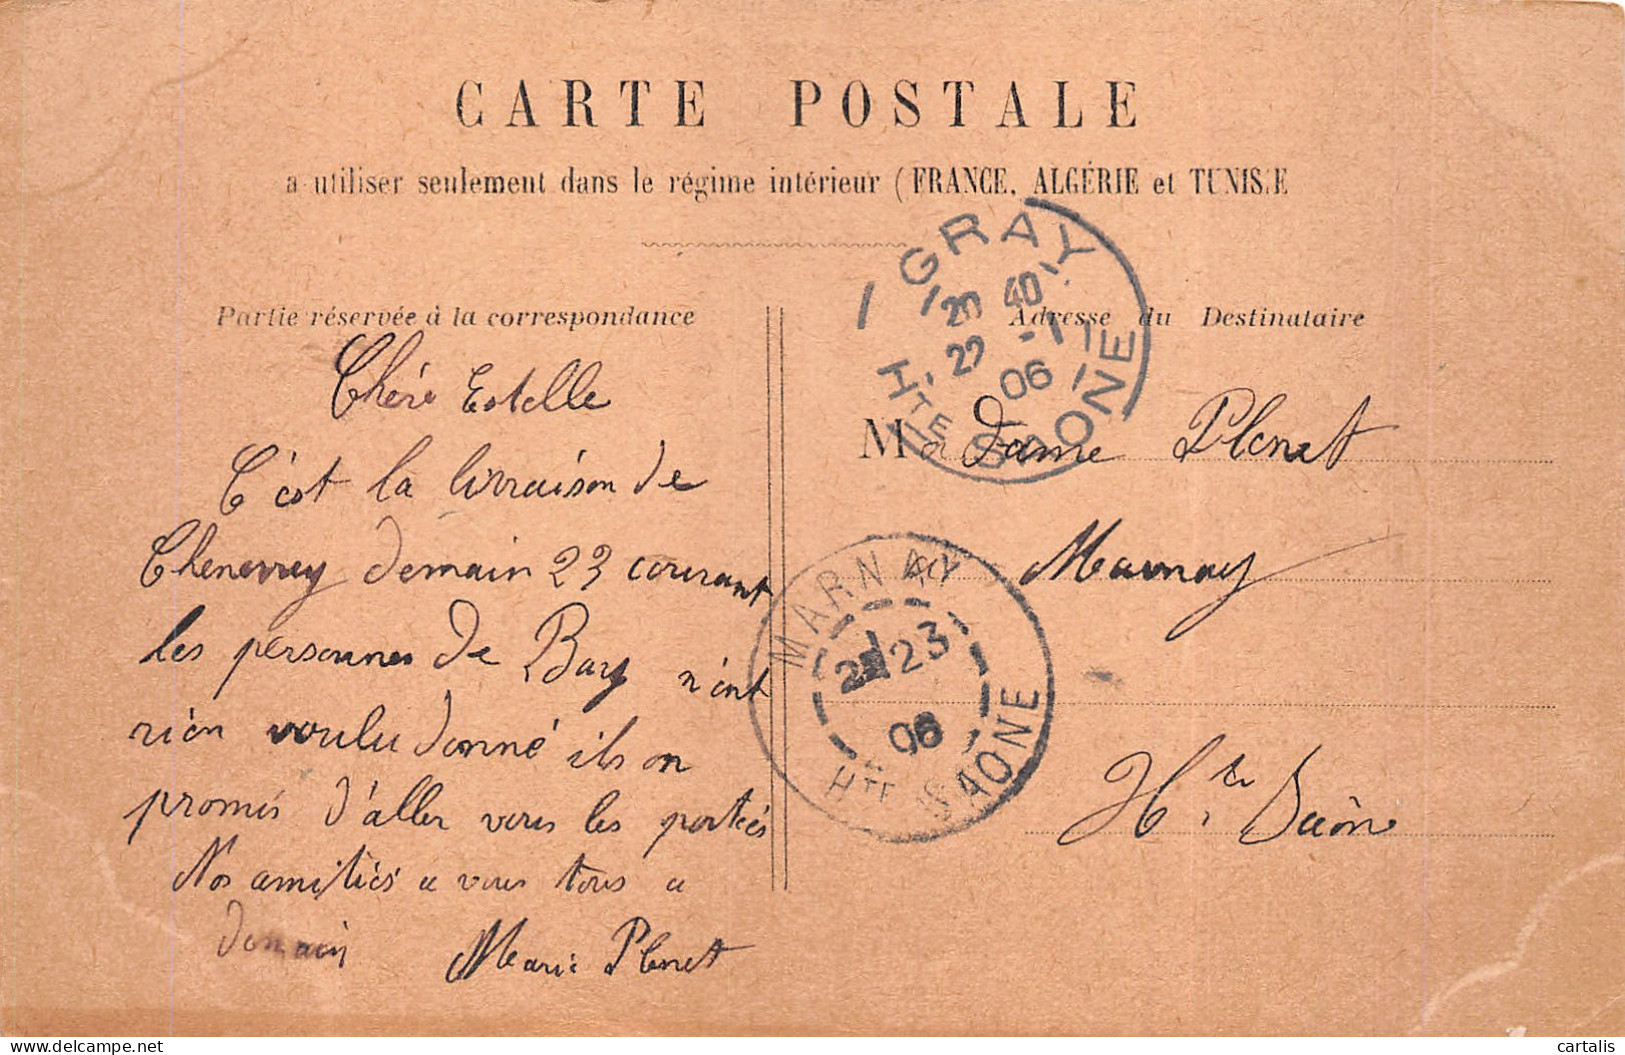 CARTE POSTALE
a utiliser seulement dans le régime intérieur (FRANCE, ALGÉRIE et TUNISIE
Partie réservée à la correspondance
Chère Estelle
C'est la livraison de
Chenevrey demain 23 courant
les personnes de Bary n'ont
rien voulu donné ils on
promis d'aller vers les portées
Nos amitiés a vous tous a
demain Marie Plenet
Adresse du Destinataire
Madame Plenet
Marnay
Hte Saône
GRAY
20 40
22 -1
06
HTE SAONE
MARNAY
23
06
HTE SAONE
delcampe.net
cartalis